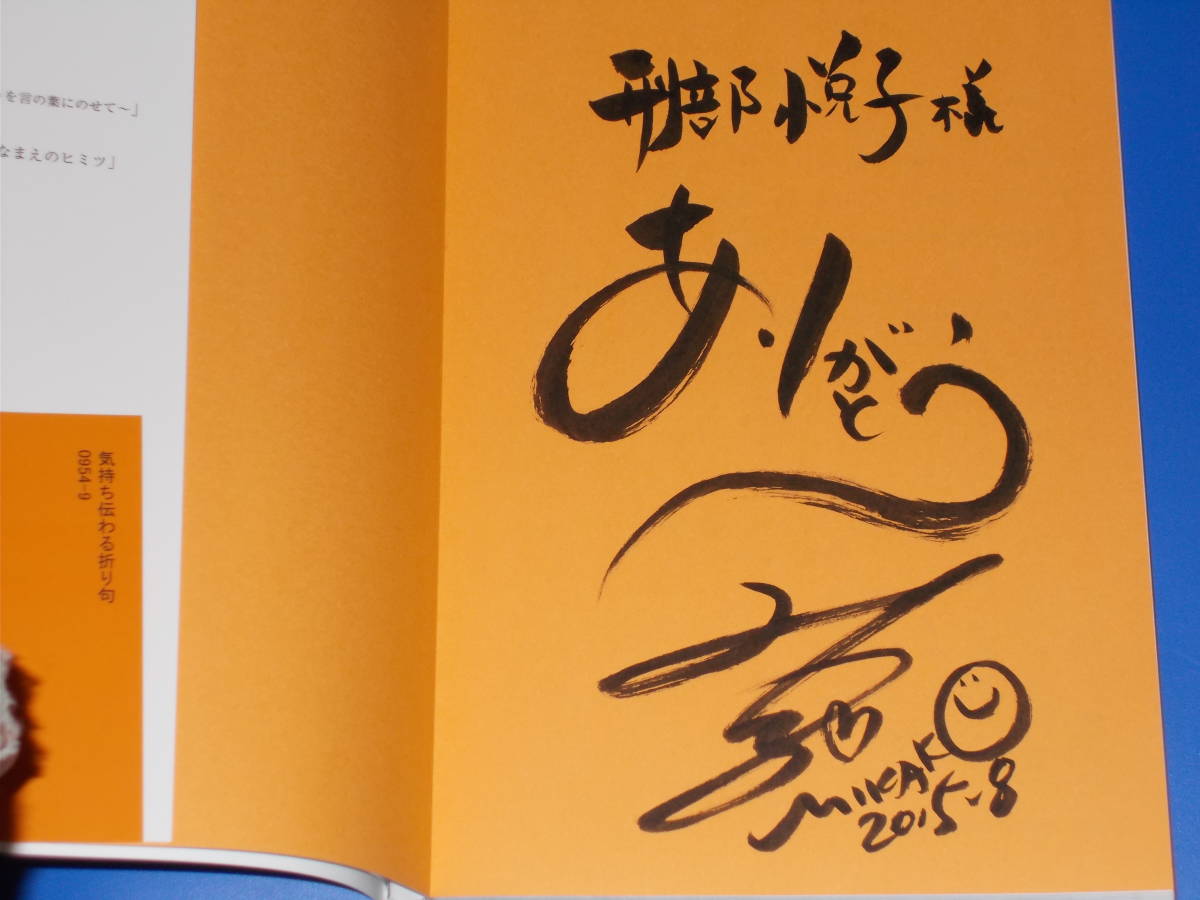 を言の葉にのせて～」
なまえのヒミツ」
気持ち伝わる折り句
0954-9
刑部悦子様
ありがとう
MIKAKO
2015.8